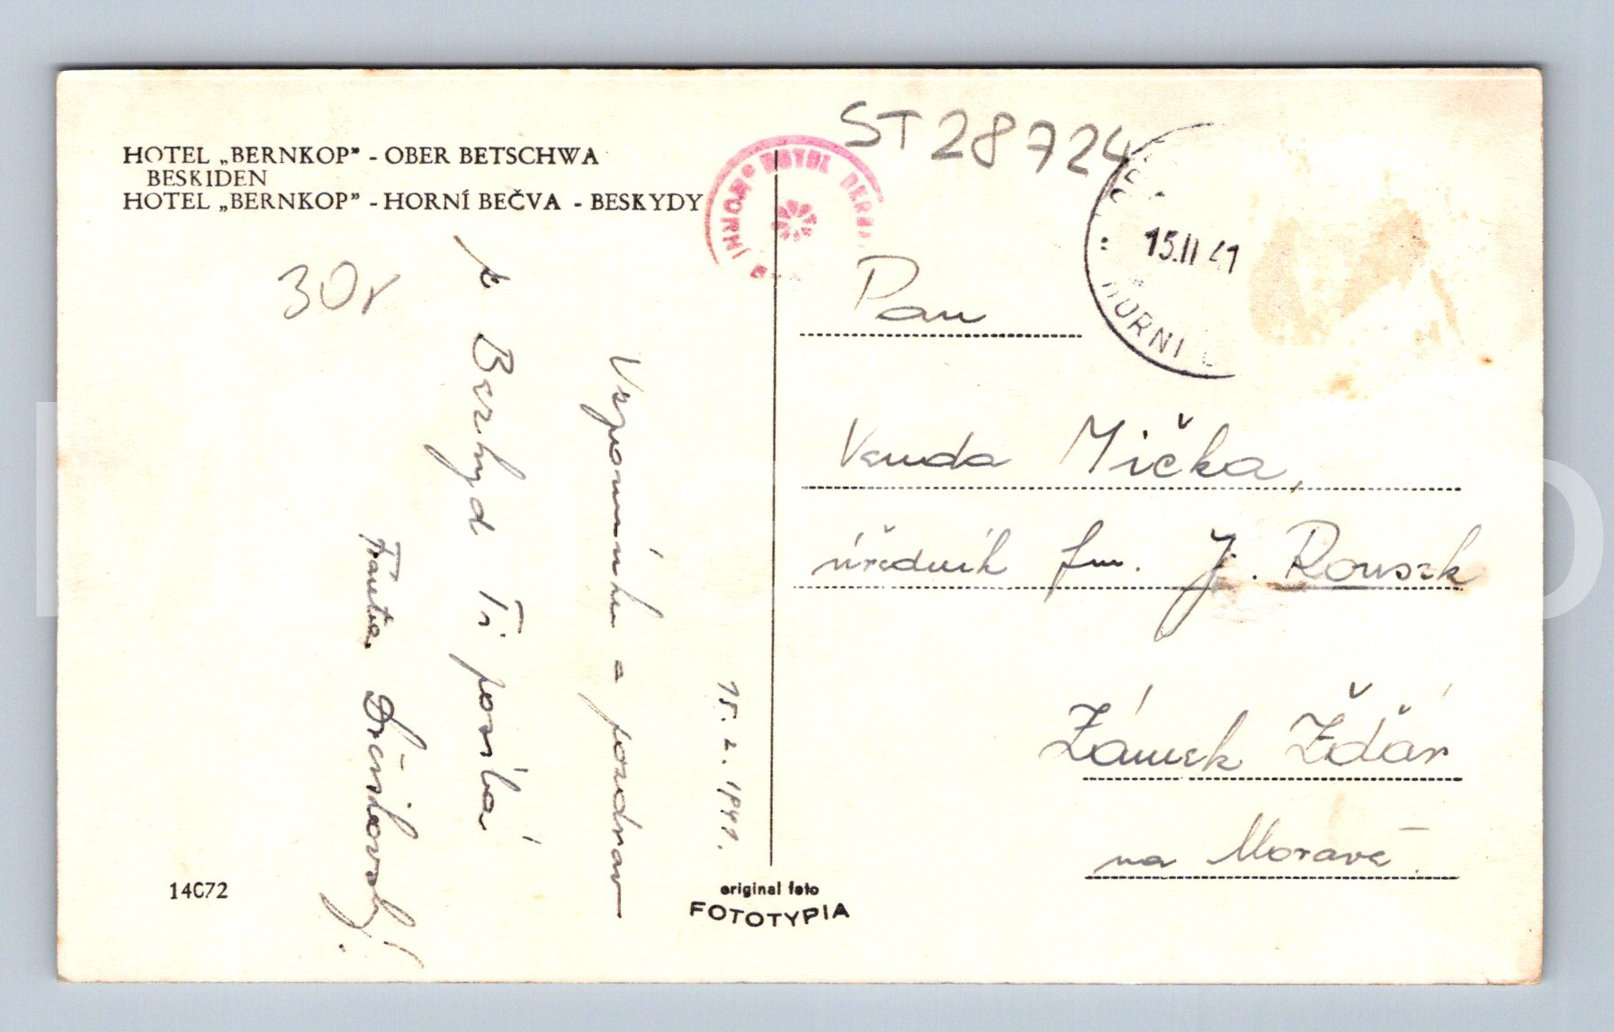 HOTEL „BERNKOP” - OBER BETSCHWA
BESKIDEN
HOTEL „BERNKOP” - HORNÍ BEČVA - BESKYDY
ST 28724
HOTEL BERN
HORNÍ
15.II 41
HORNI
30,
Pan
Venda Mička,
úředník fm. J. Rousek
Zámek Žďár
na Moravě.
15. 2. 1941.
Vzpomínku a pozdrav
z Bezkyd Ti posílá
Franta
14072
original foto
FOTOTYPIA